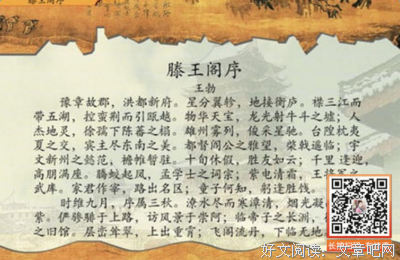 滕王阁序
滕王阁序
王勃
豫章故郡，洪都新府。星分翼轸，地接衡庐。襟三江而
带五湖，控蛮荆而引瓯越。物华天宝，龙光射牛斗之墟；人
杰地灵，徐孺下陈蕃之榻。雄州雾列，俊采星驰。台隍枕夷
夏之交，宾主尽东南之美。都督阎公之雅望，棨戟遥临；宇
文新州之懿范，襜帷暂驻。十旬休假，胜友如云；千里逢迎，
高朋满座。腾蛟起凤，孟学士之词宗；紫电清霜，王将军之
武库。家君作宰，路出名区；童子何知，躬逢胜饯。
时维九月，序属三秋。潦水尽而寒潭清，烟光凝
紫。俨骖騑于上路，访风景于崇阿；临帝子之长洲，
之旧馆。层峦耸翠，上出重霄；飞阁流丹，下临无地
好文阅读：文章吧网